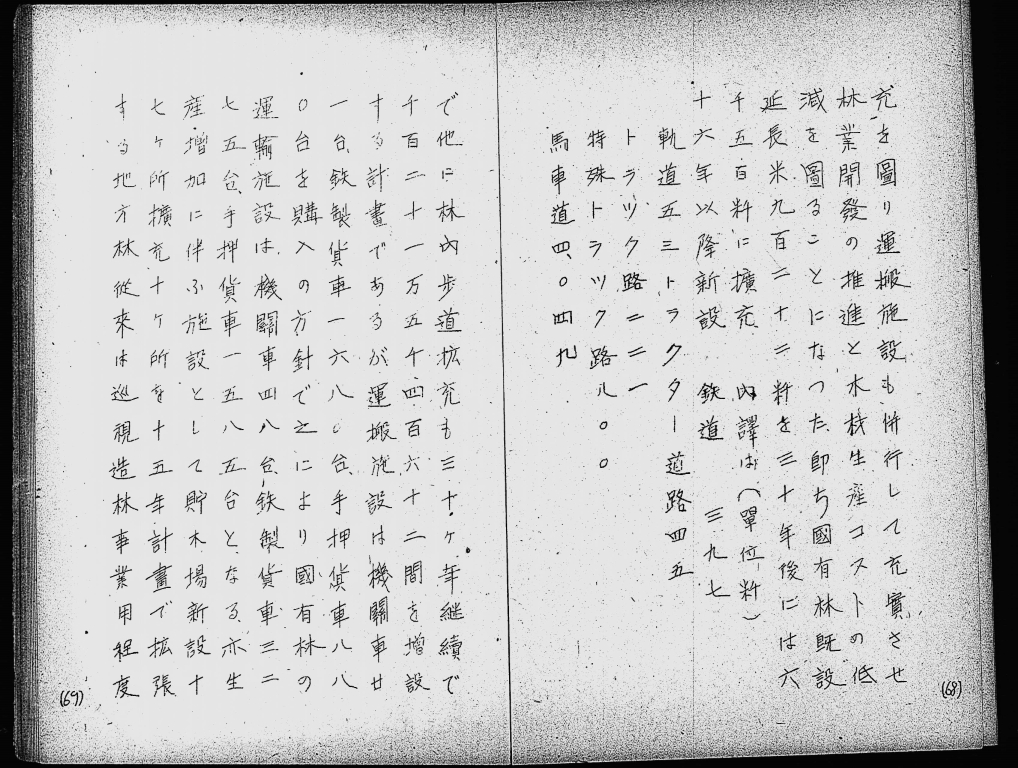 充を圖り運搬施設も併行して充實させ
林業開發の推進と木材生産コストの低
減を圖ることになつた即ち國有林既設
延長米九百二十二粁を三十年後には六
千五百粁に擴充 内譯は(單位粁)
十六年以降新設 鉄道 三九七
軌道五三トラクター道路四五
トラツク路二二一
特殊トラツク路八〇〇
馬車道四、〇四九
(68)
で他に林内歩道拡充も三十ヶ年継續で
千百二十一万五千四百六十二間を増設
する計畫であるが運搬施設は機關車廿
一台、鉄製貨車一一六八〇台、手押貨車八八
〇台を購入の方針で之により國有林の
運輸施設は機關車四八台、鉄製貨車三二
七五台、手押貨車一五八五台となる亦生
産増加に伴ふ施設として貯木場新設十
七ヶ所擴充十ヶ所を十五年計畫で拡張
する地方林從来は巡視造林事業用程度
(69)